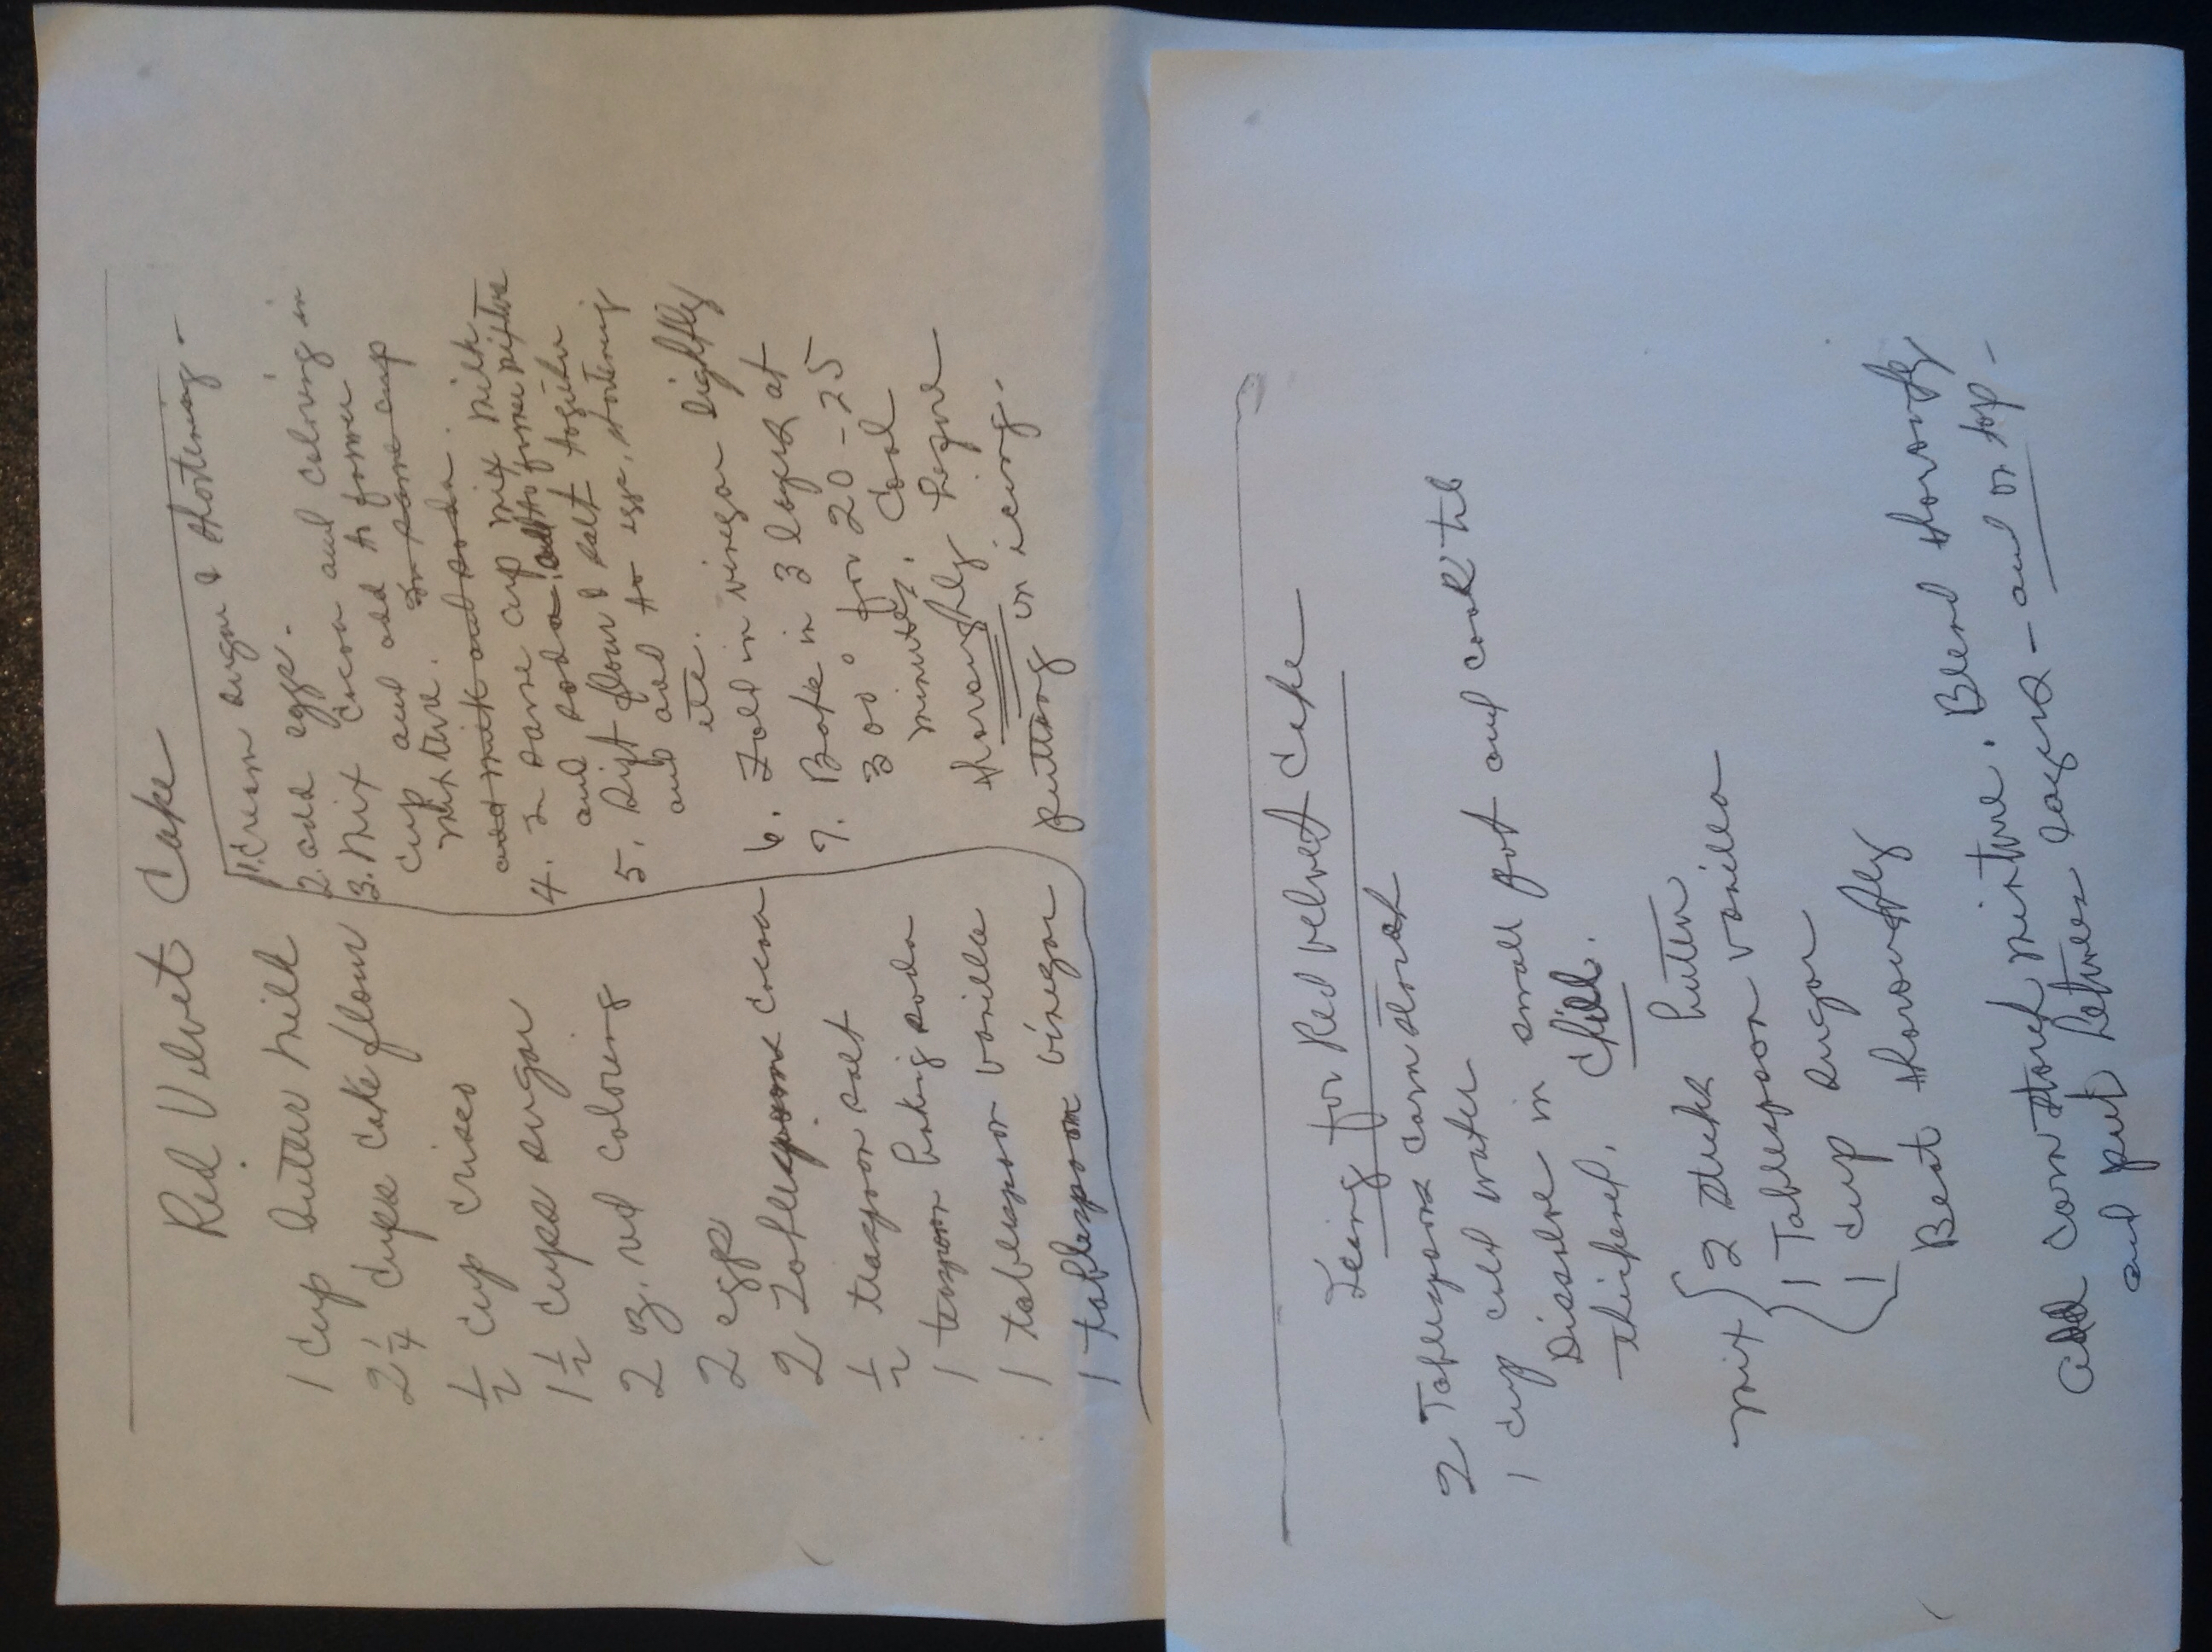 Red Velvet Cake
1 cup butter milk
2 1/4 cups cake flour
1/2 cup crisco
1 1/2 cups sugar
2 oz. red coloring
2 eggs
2 Tablespoons cocoa
1/2 teaspoon salt
1 teaspoon baking soda
1 tablespoon vanilla
1 tablespoon vinegar
1. Cream sugar & shortening -
2. add eggs.
3. Mix cocoa and coloring in
cup and add to former
mixture. In same cup
add milk and soda.
4. In same cup mix milk
and soda. add to former mixture
5. Sift flour & salt together
and add to egg, shortening
etc.
6. Fold in vinegar lightly
7. Bake in 3 layers at
300° for 20-25
minutes. Cool
thoroughly before
putting on icing.
Icing for Red velvet Cake
2 Tablespoons corn starch
1 cup cold water
Dissolve in small pot and cook til
thickened. Chill.
mix { 2 sticks butter
1 Tablespoon vanilla
1 cup sugar
Beat thoroughly
add cornstarch mixture. Blend thoroughly
and put between layers - and on top -